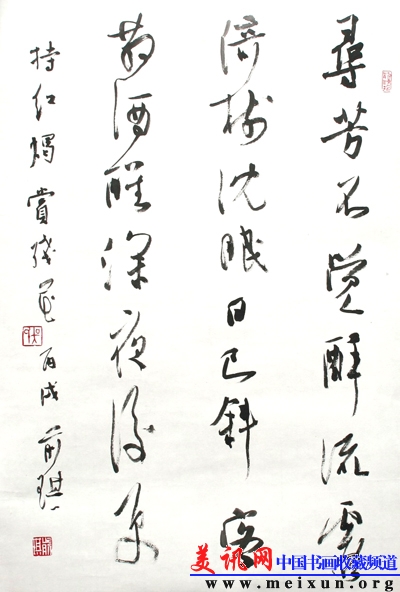 尋芳不覺醉流霞
倚樹沈眠日已斜客
散酒醒深夜後更
持紅燭賞殘花 丙戌
美讯网 中国书画收藏频道
www.meixun.org